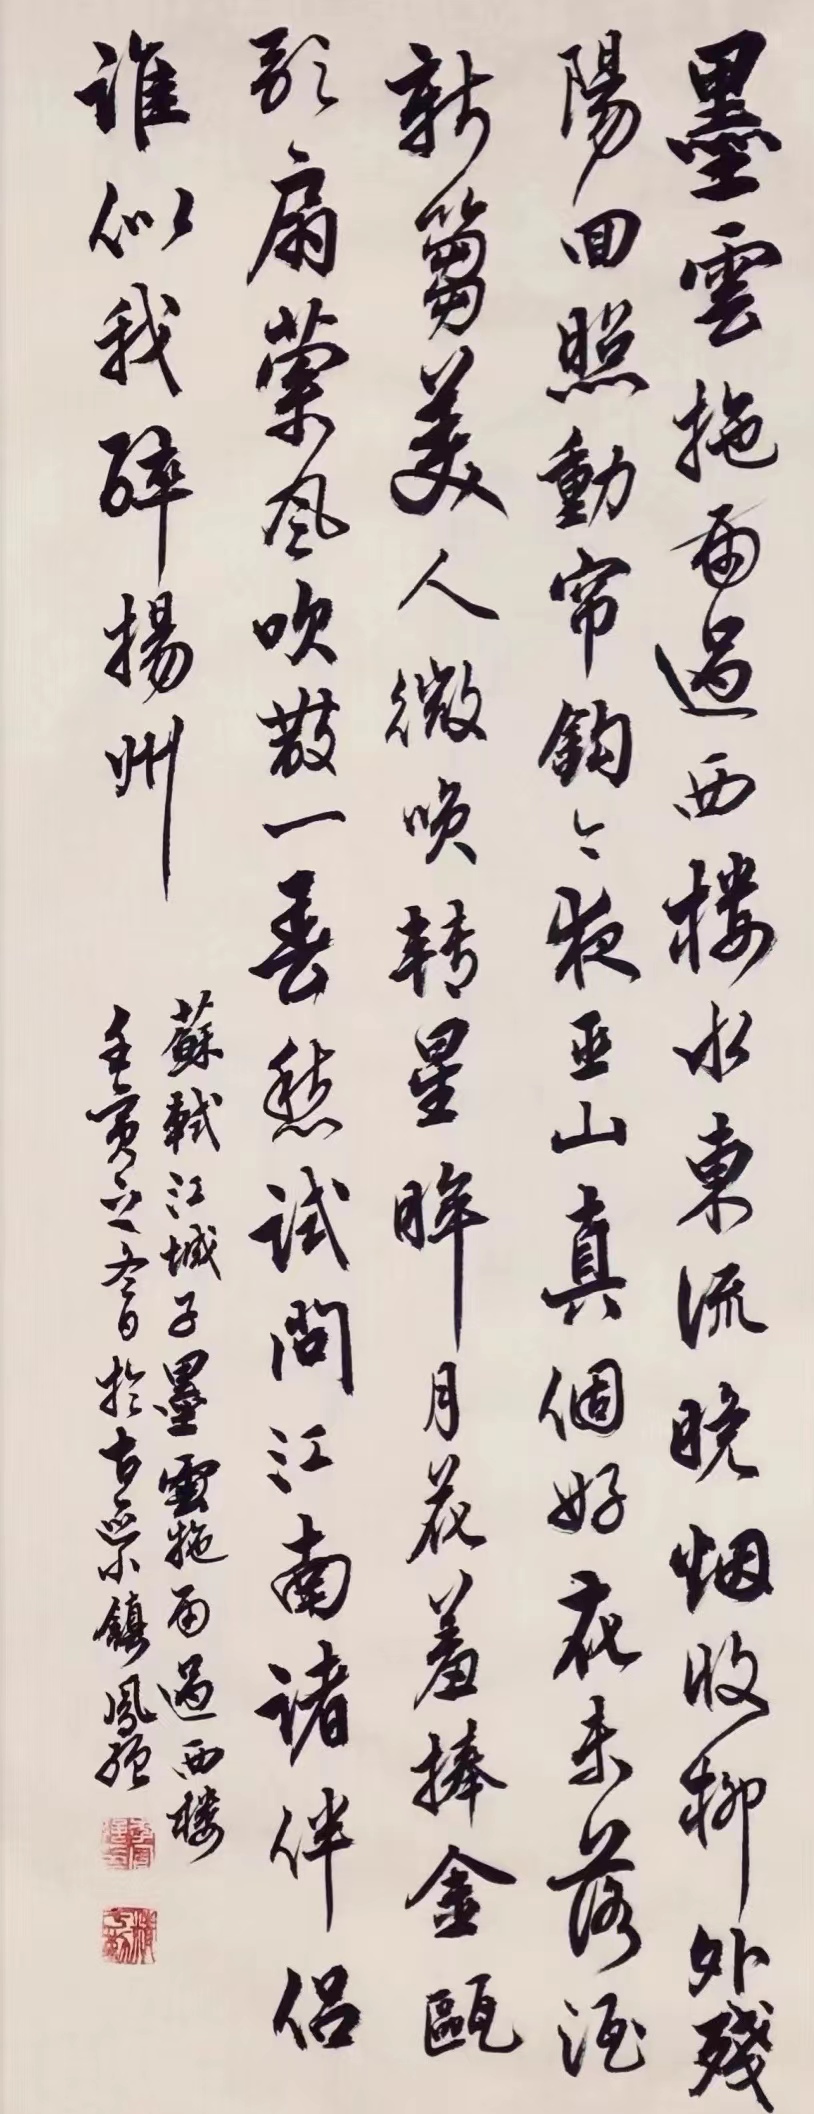 墨雲拖雨過西樓水東流晚烟收柳外殘
陽回照動帘鈎今夜巫山真個好花未落酒
新篘美人微唤轉星眸月花羞捧金甌
歌扇縈風吹散一春愁試問江南諸伴侣
誰似我醉揚州
蘇軾江城子墨雲拖雨過西樓
壬寅立春日於古縈鎮